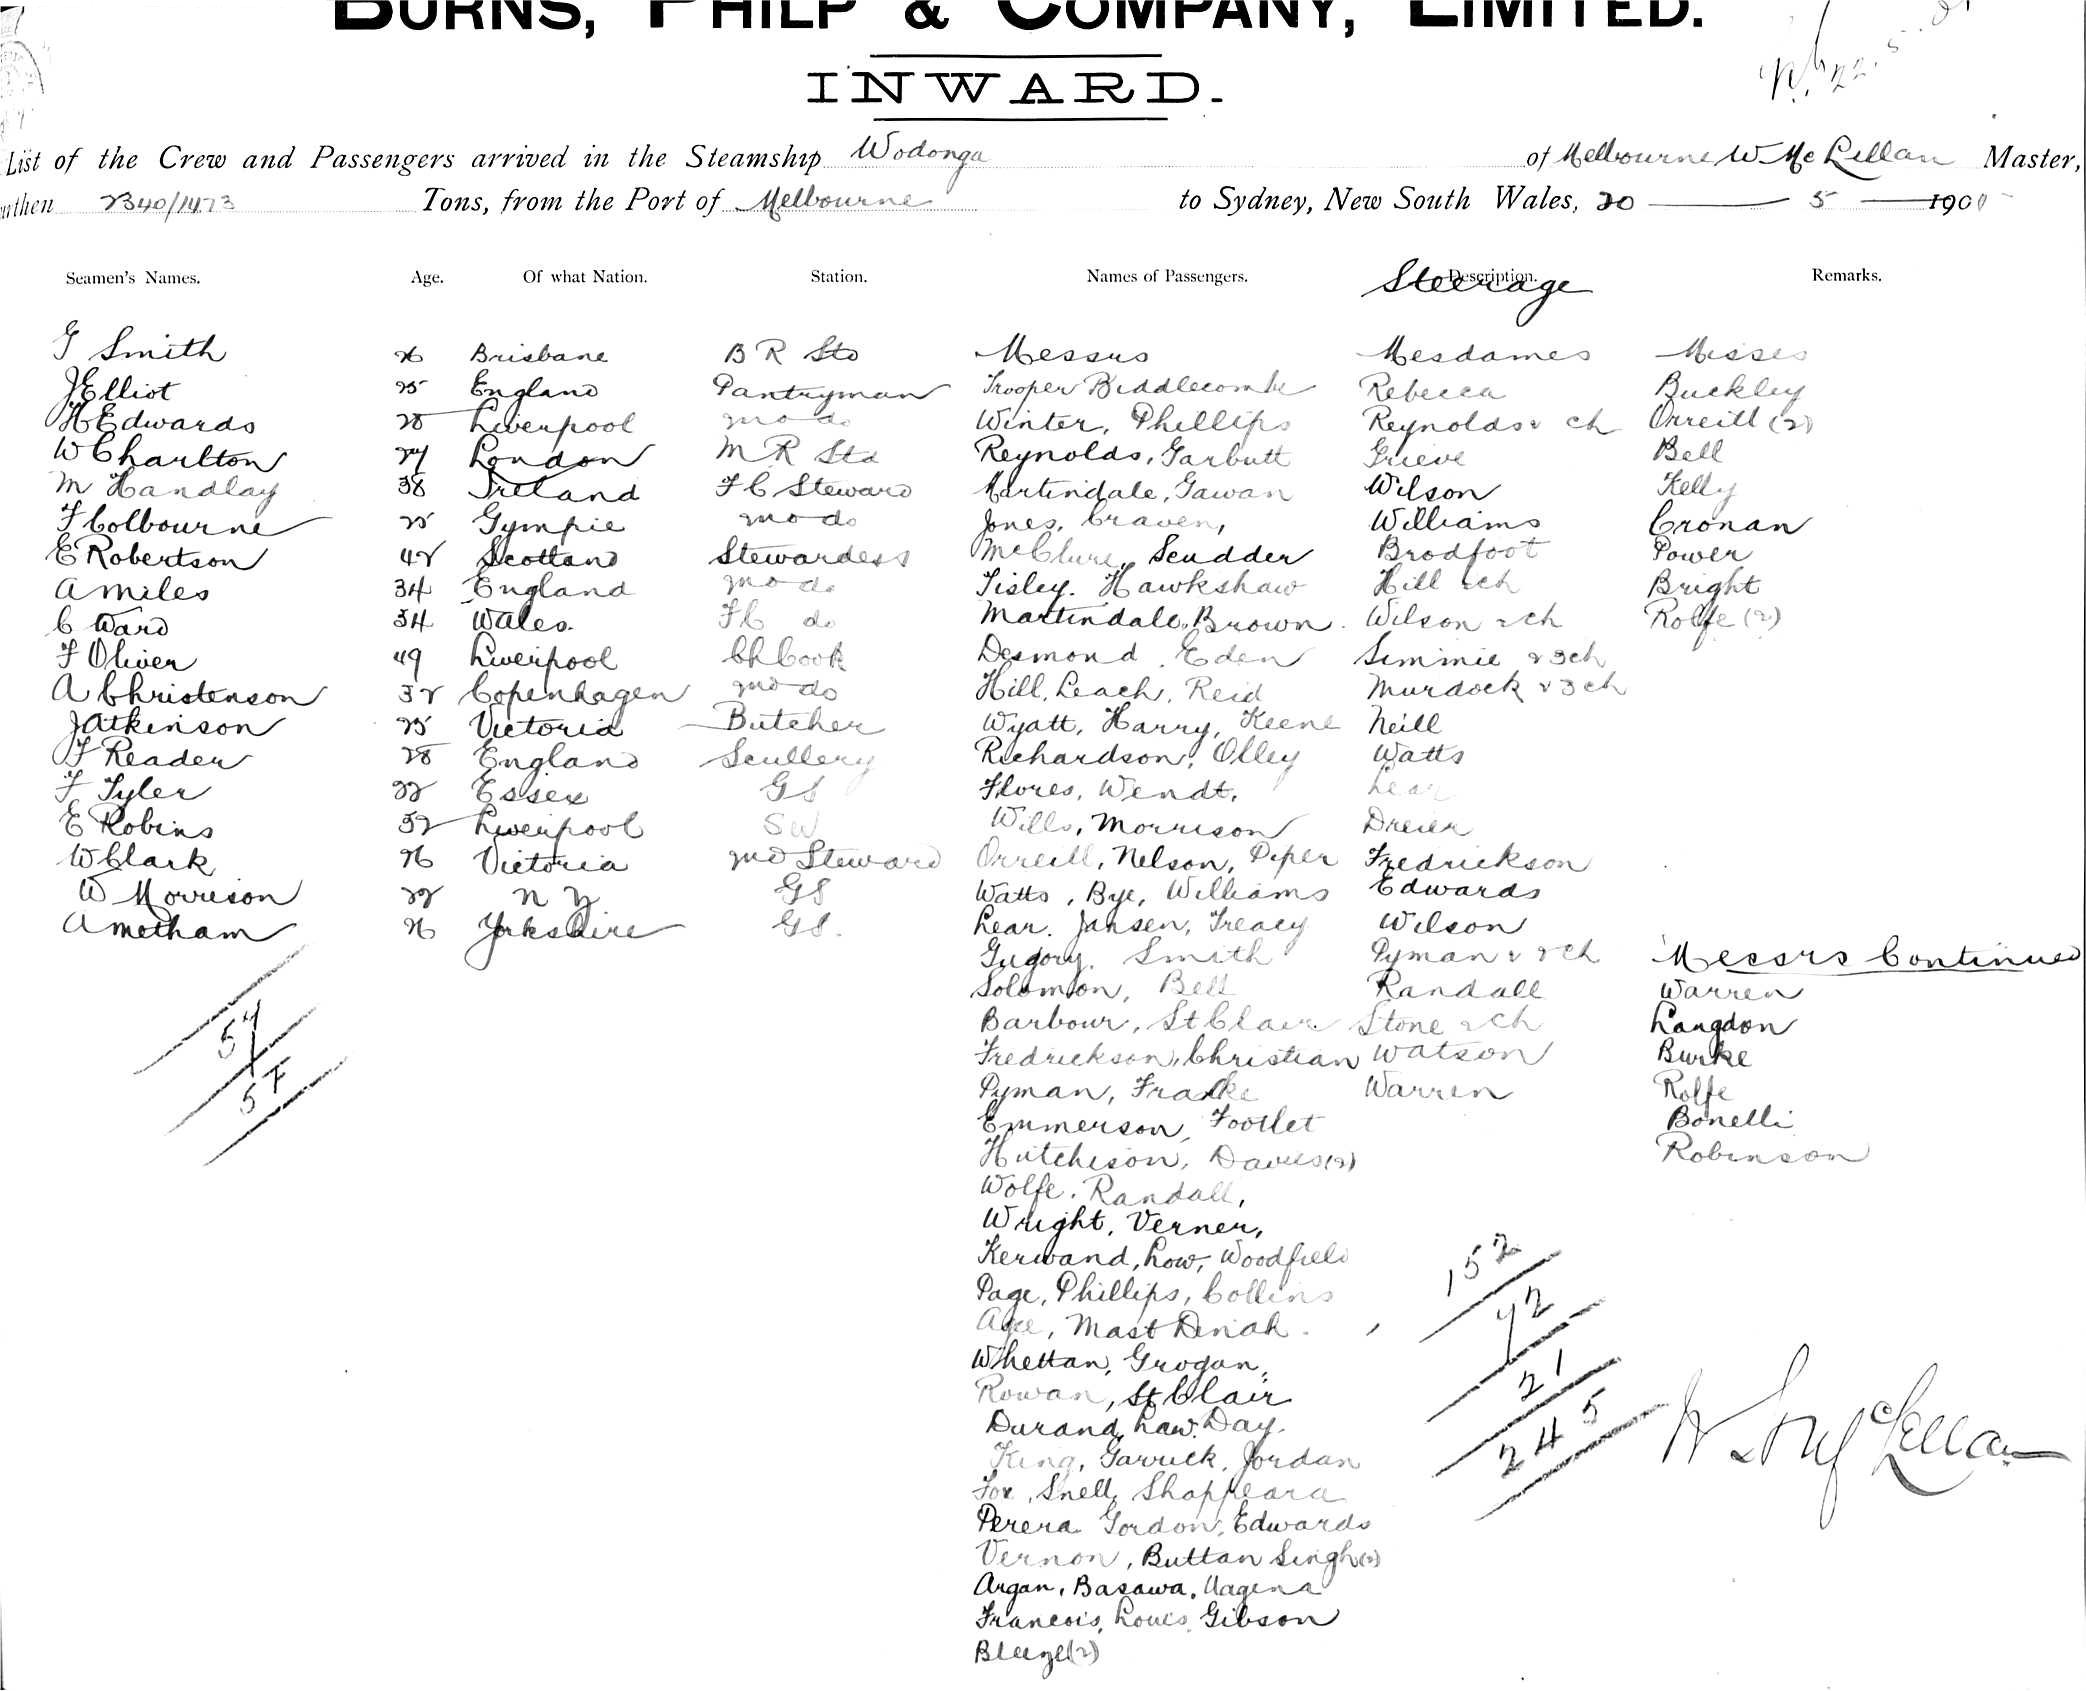 BURNS, PHILP & COMPANY, LIMITED.
INWARD.
List of the Crew and Passengers arrived in the Steamship Wodonga of Melbourne W. McLellan Master,
2340/1473 Tons, from the Port of Melbourne to Sydney, New South Wales, 20 5 190
Seamen's Names. Age. Of what Nation. Station. Names of Passengers. Description. Steerage Remarks.
Smith 26 Brisbane B R Std Messrs Mesdames Misses
J Elliot 25 England Pantryman Trooper Biddlecombe Rebecca Buckley
H Edwards 28 Liverpool do Winter, Phillips Reynolds & ch Orreill (2)
W Charlton 27 London M R Std Reynolds, Garbutt Grieve Bell
M Handlay 38 Ireland F C Steward Martindale, Gawan Wilson Kelly
F Colbourne 25 Gympie do Jones, Craven, Williams Cronan
E Robertson 42 Scotland Stewardess McClure, Scudder Brodfoot Power
A Miles 34 England do Tisley. Hawkshaw Hill & ch Bright
C Ward 34 Wales. F C do Martindale, Brown. Wilson & ch Rolfe (2)
F Oliver 49 Liverpool Ch Cook Desmond, Eden Simmie & 3 ch
A Christenson 32 Copenhagen do Hill, Leach, Reid Murdock & 3 ch
J Atkinson 25 Victoria Butcher Wyatt, Harry, Keene Neill
F Reader 28 England Scullery Richardson, Olley Watts
F Tyler 22 Essex GS Flores, Wendt, Lear
E Robins 32 Liverpool SW Wills, Morrison Dreier
W Clark 26 Victoria Steward Orreill, Nelson, Piper Fredrickson
W Morrison 22 N Z GS Watts, Bye, Williams Edwards
A Metham 26 Yorkshire GS. Lear. Jansen, Treacy Wilson
Gregory. Smith Pyman & 2 ch Messrs Continued
Solomon, Bell Randall Warren
57 Barbour, St Clair Stone & ch Langdon
Fredrickson, Christian Watson Burke
57 Pyman, Franke Warren Rolfe
Emmerson, Footlet Bonelli
Hutchison, Davies (2) Robinson
Wolfe, Randall,
Wright, Verner,
Kerwand, Low, Woodfield 152
Page, Phillips, Collins 72
Mast Deriah.
Whettan, Grogan, 21
Rowan, St Clair
Durand, Law. Day. 245
King, Garrick, Jordan McLellan
Fox, Snell, Shappeara
Perera Gordon, Edwards
Vernon, Buttan Singh (2)
Argan, Basawa, Nagena
Francois, Louis, Gibson
(2)